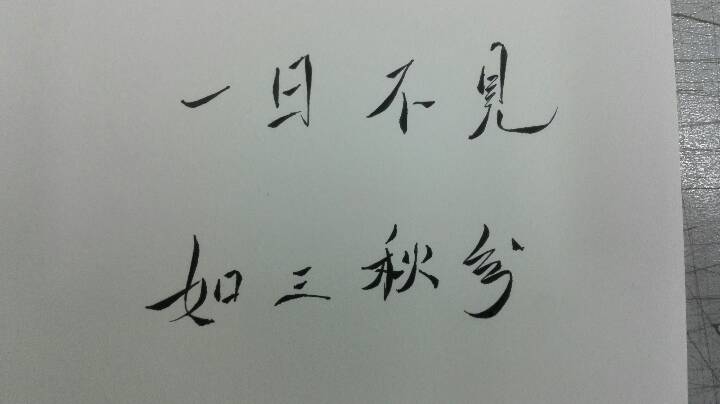 一日不見
如三秋兮